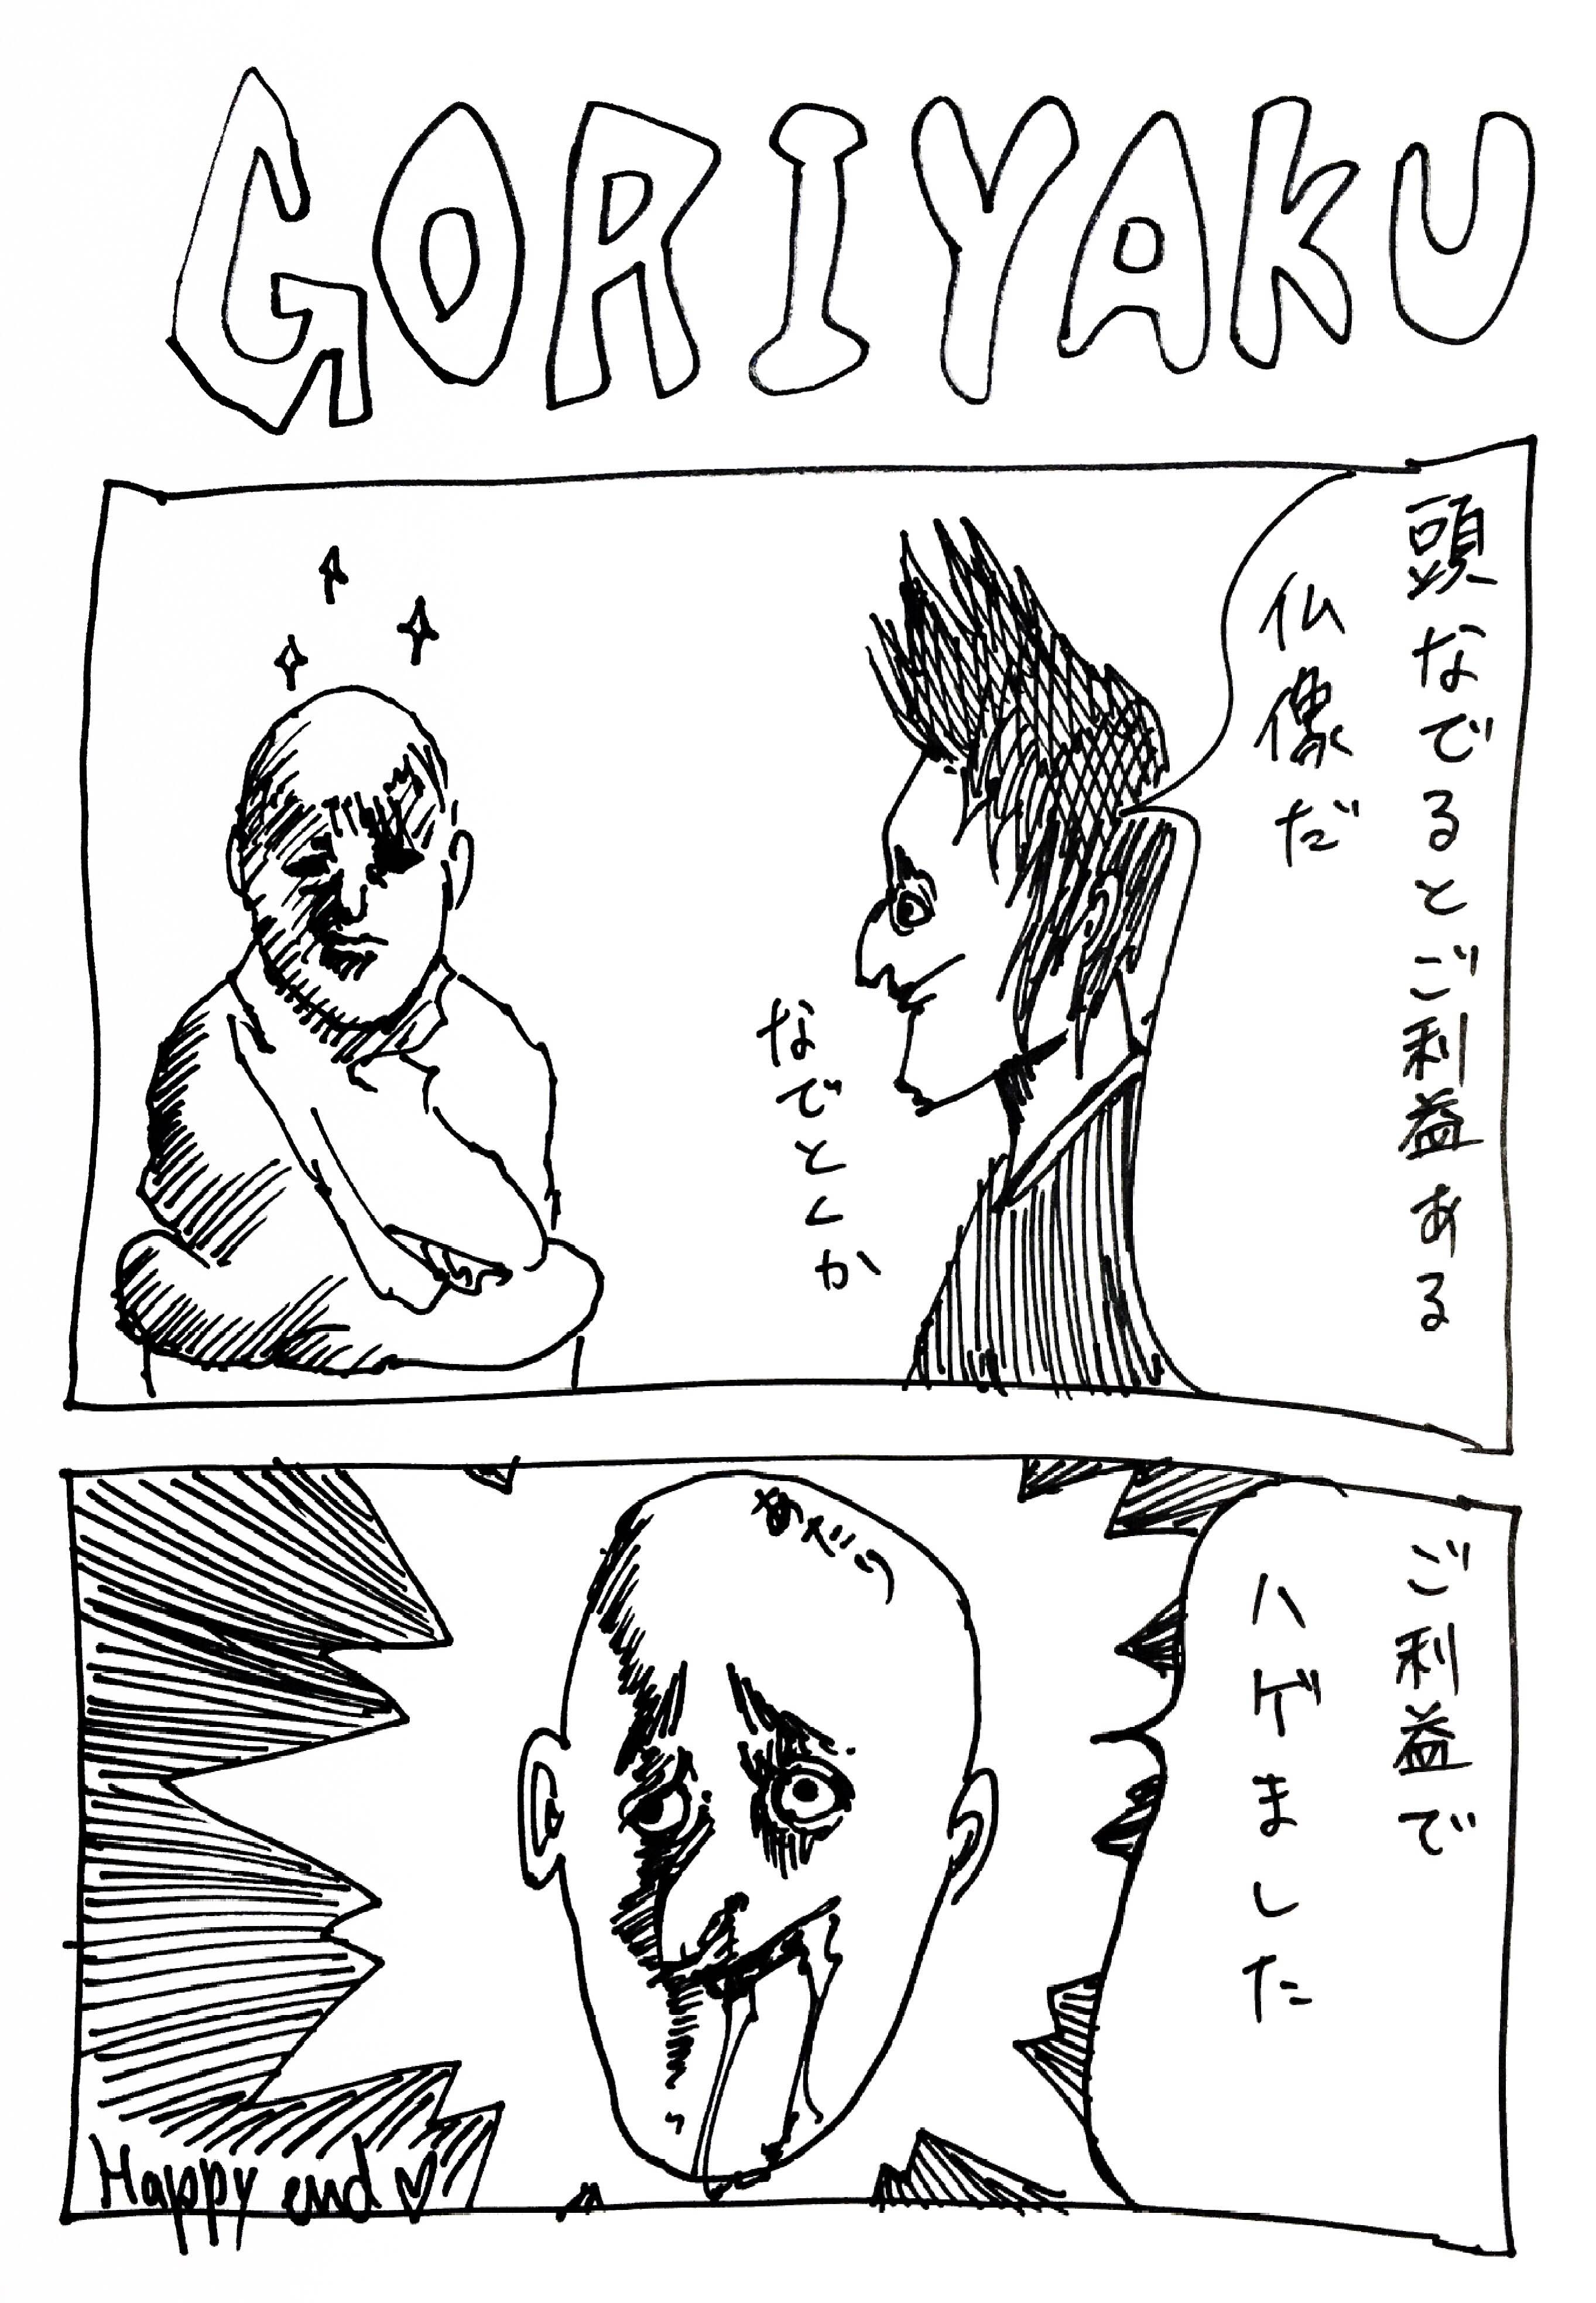 GORIYAKU
頭なでるとご利益ある
仏像だ
なでとくか
ご利益で
ハゲました
Happy end♡